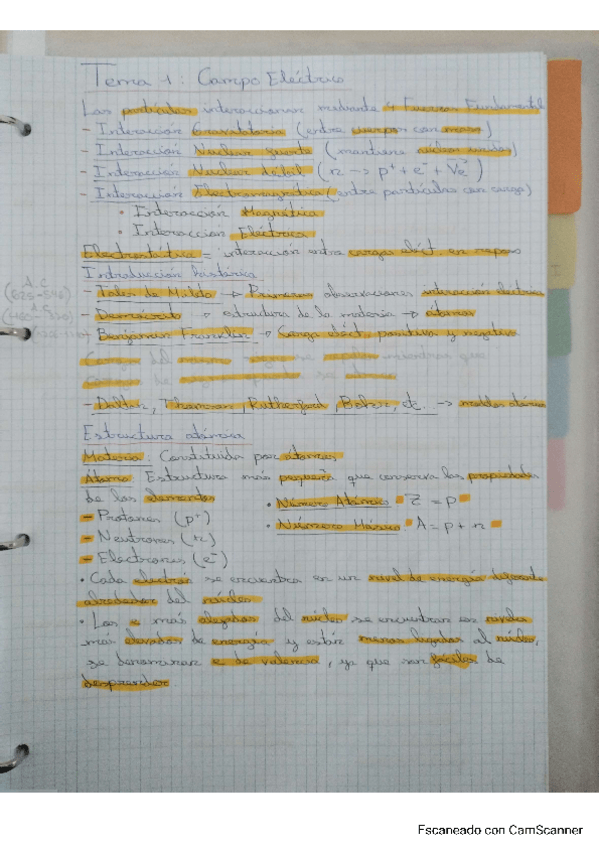 Tema 1: Campo Eléctrico
Las partículas interaccionan mediante 4 Fuerzas Fundamental
- Interacción Gravitatoria (entre cuerpos con masa)
- Interacción Nuclear fuerte (mantiene núcleos unidos)
- Interacción Nuclear débil (n → p⁺ + e⁻ + Ve)
- Interacción Electromagnética (entre partículas con carga)
• Interacción Magnética
• Interacción Eléctrica
Electrostática = interacción entre cargas eléct. en reposo
Introducción histórica
A.C
(625-546)
- Tales de Mileto → Primeras observaciones interacción eléctrica
- Demócrito → estructura de la materia → átomos
- Benjamin Franklin → Carga eléct. positiva y negativa
Cargas del mismo signo se mientras que
cargas de signo opuesto se atraen
- Dalton, Thomson, Rutherford, Bohr, etc. → modelos atómicos
Estructura atómica
Materia: Constituida por átomos
Átomo: Estructura más pequeña que conserva las propiedades
de los elementos
• Número Atómico: Z = p
- Protones (p⁺)
• Número Másico: A = p + n
- Neutrones (n)
- Electrones (e⁻)
• Cada electrón se encuentra en un nivel de energía
alrededor del núcleo
• Los e más alejados del núcleo se encuentran en niveles
más elevados de energía y están menos ligados al núcleo,
se denominan e de valencia, ya que son fáciles de
desprender.
Escaneado con CamScanner